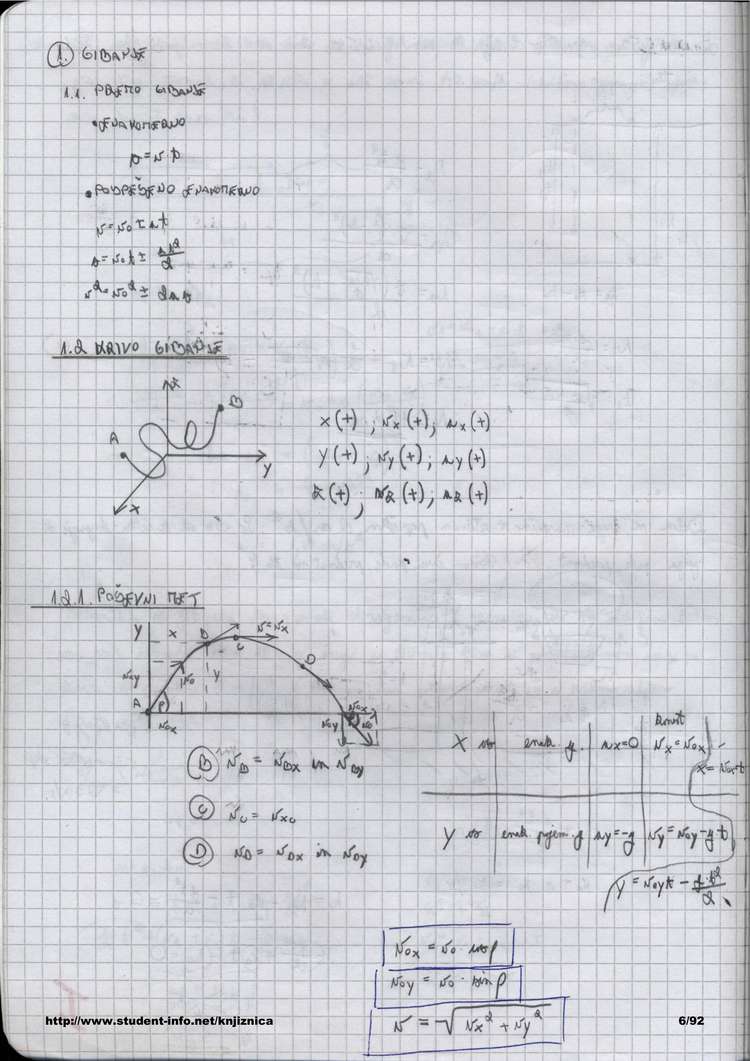 1. GIBANJE
1.1. PREMO GIBANJE
• ENAKOMERNO
s = v t
• POSPEŠENO ENAKOMERNO
v = v0 ± at
s = v0t ± at²/2
v² = v0² ± 2as
1.2 KRIVO GIBANJE
Z
B
A
Y
X
x(t) ; vx(t) ; ax(t)
y(t) ; vy(t) ; ay(t)
z(t) ; vz(t) ; az(t)
1.2.1. POŠEVNI MET
Y X B C v = vx
D
v0y v0 Y
A φ v0x
v0x
v0y v0
B vB = vBx in vBy
C vC = vxC
D vD = vDx in vDy
konst
X os enak. g. ax=0 vx = v0x
x = v0x·t
Y os enak. pojem. g ay = -g vy = v0y - g t
y = v0yt - g·t²/2
v0x = v0 · cosφ
v0y = v0 · sinφ
v = √vx² + vy²
http://www.student-info.net/knjiznica
6/92